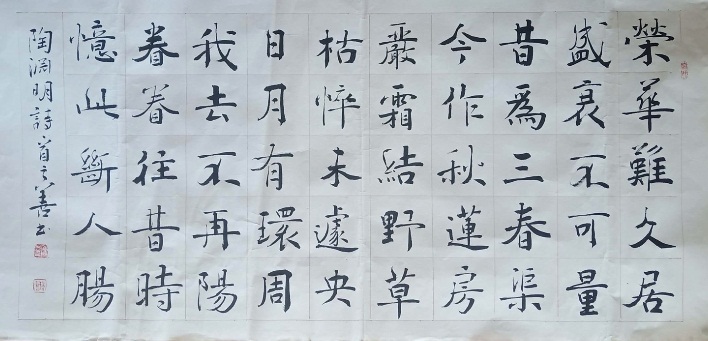 榮華難久居
盛衰不可量
昔爲三春渠
今作秋蓮房
嚴霜結野草
枯悴未遽央
日月有環周
我去不再陽
眷眷往昔時
憶此斷人腸
陶淵明詩一首之善书